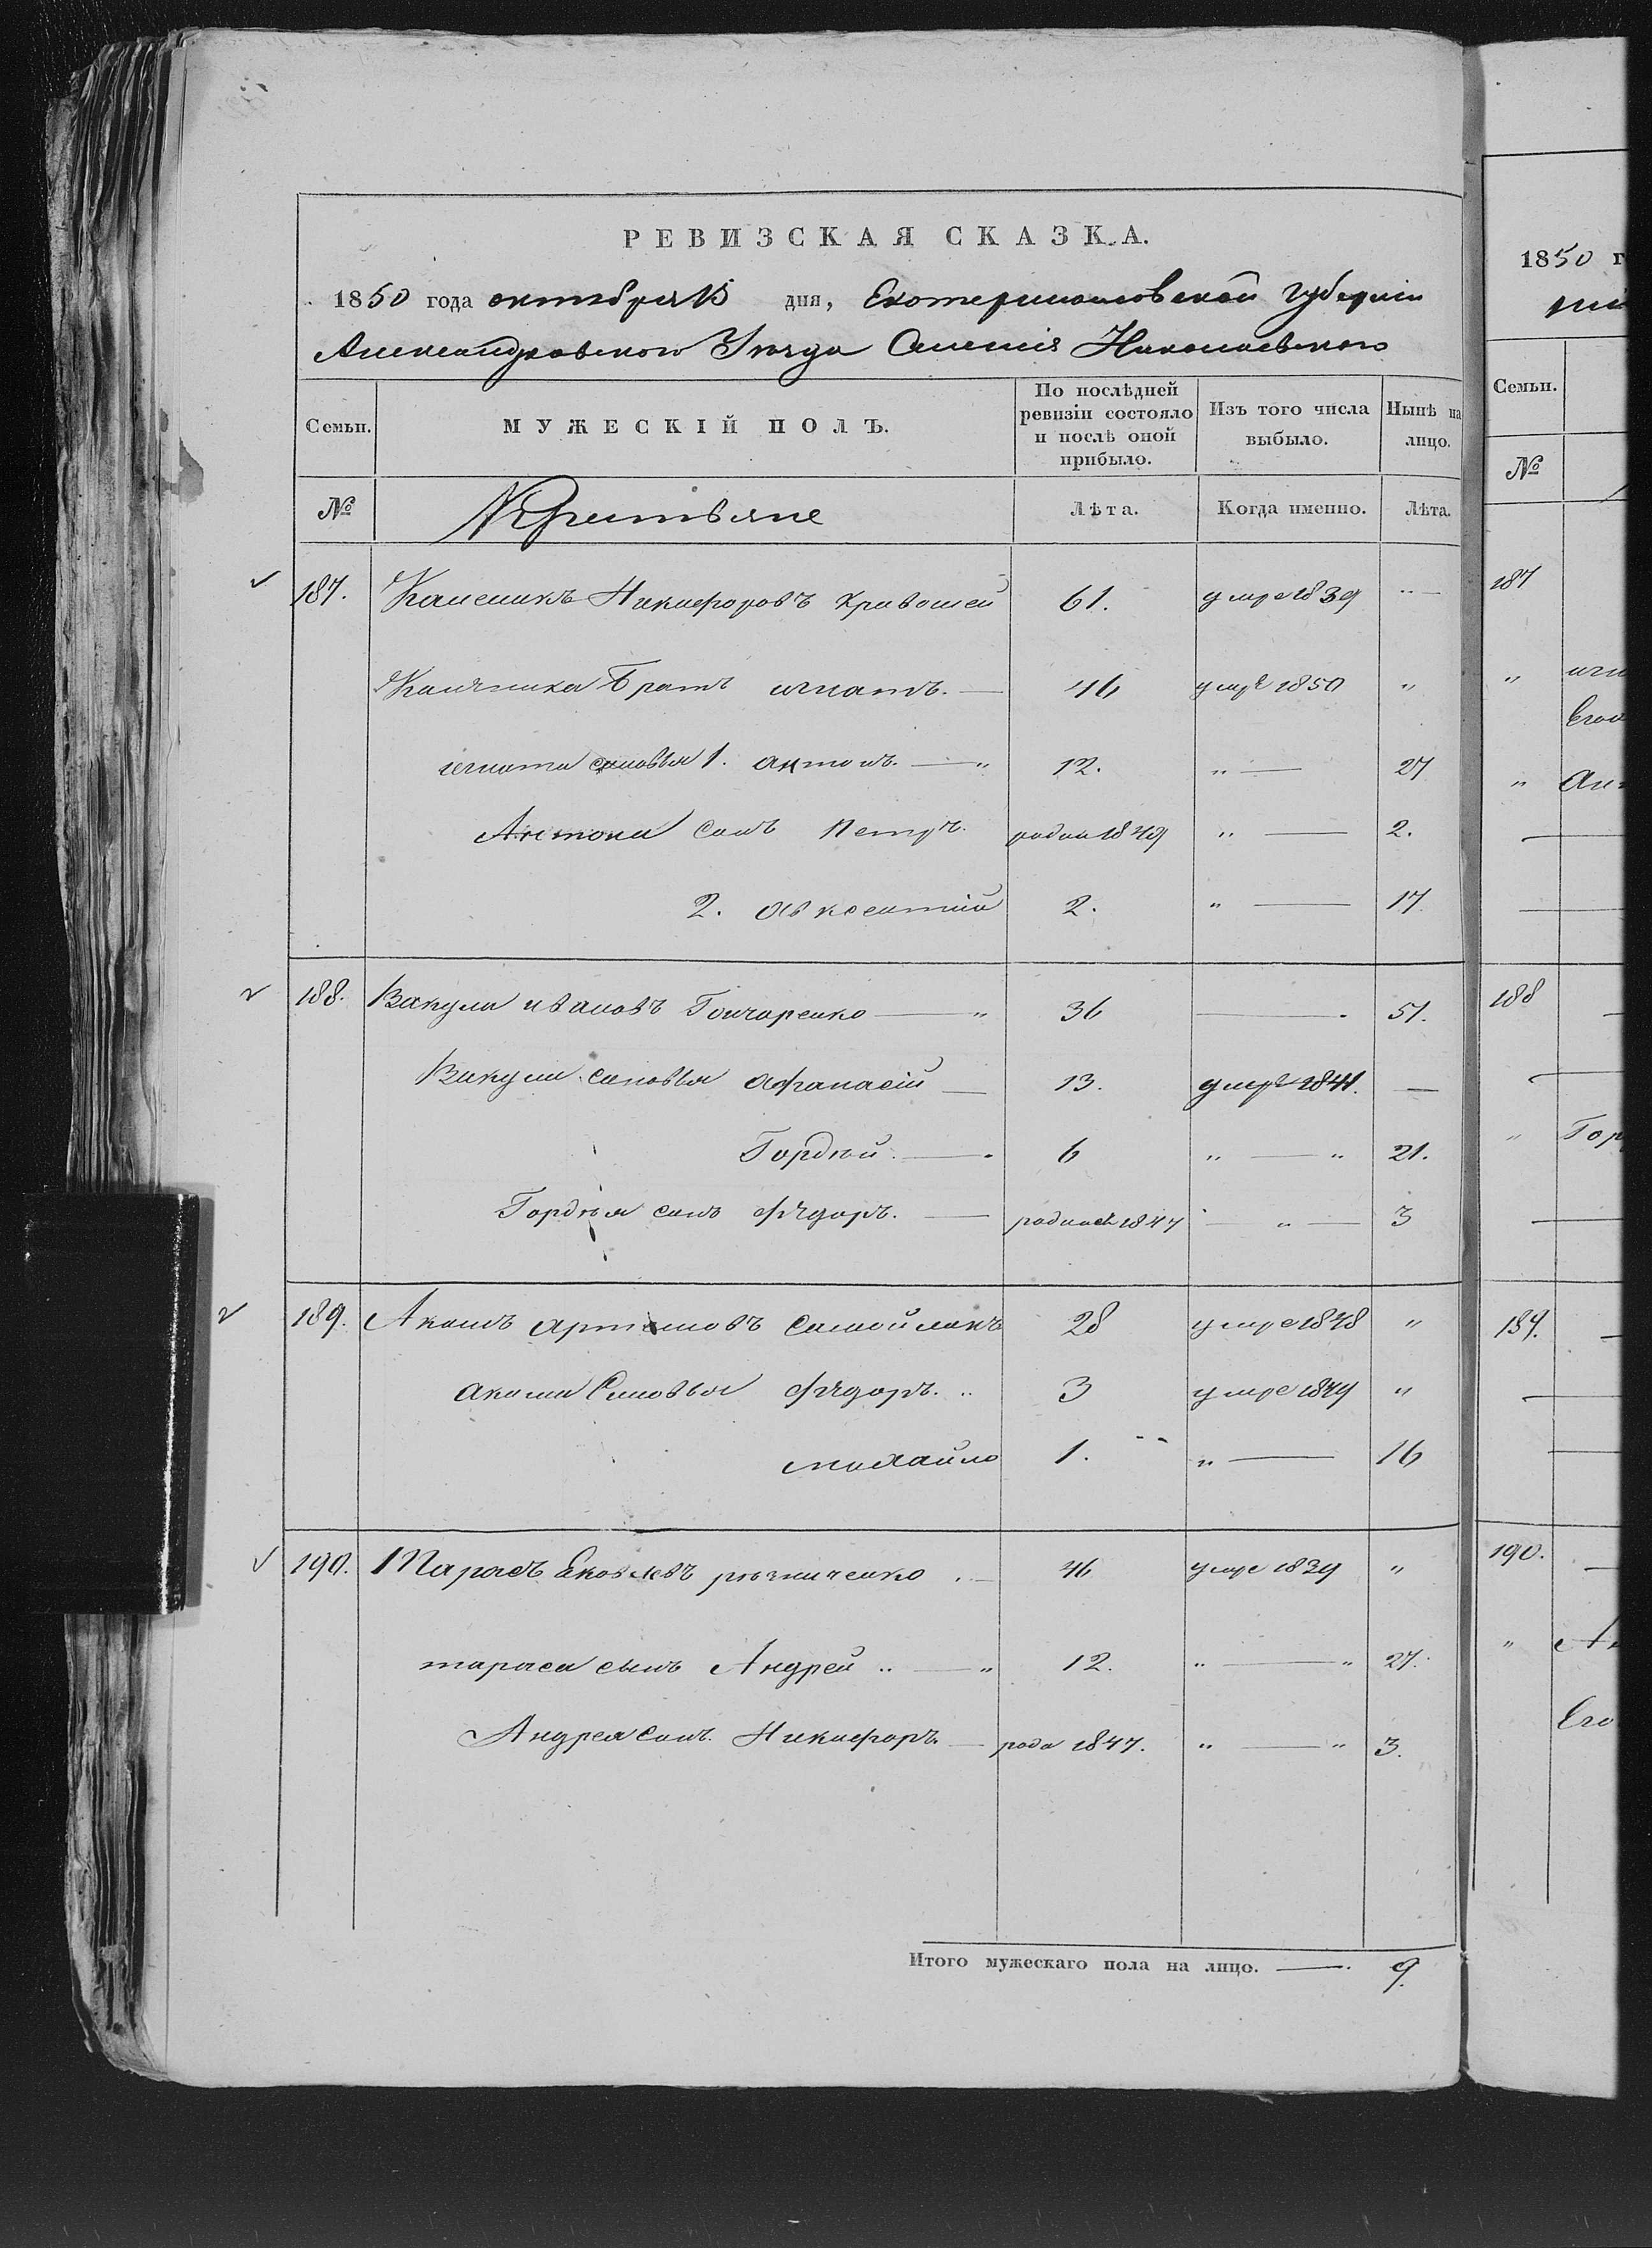 РЕВИЗСКАЯ СКАЗКА.
1850 года октября 15 дня, Екатеринославской губернии
Александровского Уѣзда Селения Николаевского
Семьи. МУЖЕСКІЙ ПОЛЪ. По послѣдней ревизіи состояло и послѣ оной прибыло. Изъ того числа выбыло. Нынѣ на лицо.
№ Крестьяне Лѣта. Когда именно. Лѣта.
187. Калениκъ Никифоровъ Кривошей 61. умре 1839 " —
Каленика Братъ игнатъ. — 46 умре 1850 "
игната сыновья 1. антонъ. — " 12. " — 27
Антона сынъ Петръ. родил 1849 " — 2.
2. авксентий 2. " — 17.
188. Вакула ивановъ Гончаренко — " 36 — . 51.
Вакулы сыновья афанасій — 13. умре 1841. —
Гордѣй. — . 6 " — " 21.
Гордѣя сынъ фѣдоръ. — родился 1847 — " — 3
189. Акимъ артемовъ самойленко 28 умре 1848 "
акима сыновья фѣдоръ. .. 3 умре 1849 "
михайло 1. " — 16
190. Тарасъ Ековлевъ рѣзниченко . — 46 умре 1839 "
тараса сынъ Андрей .. — " 12. " — " 27.
Андрея сынъ. Никифоръ. — родил 1847. " — " 3.
Итого мужескаго пола на лицо. — . 9.
1850 г
Семьи.
№
187
"
"
Его
Ан
188
" Гор
189.
190.
" Ан
Его